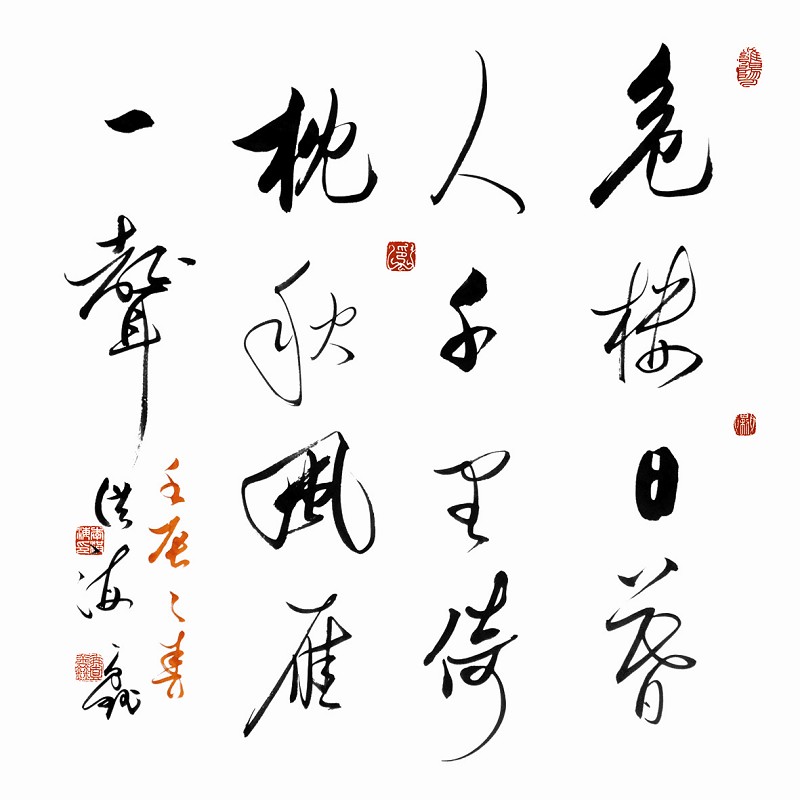 危楼日暮
人千里倚
枕秋風雁
一聲
壬辰之春
洪海